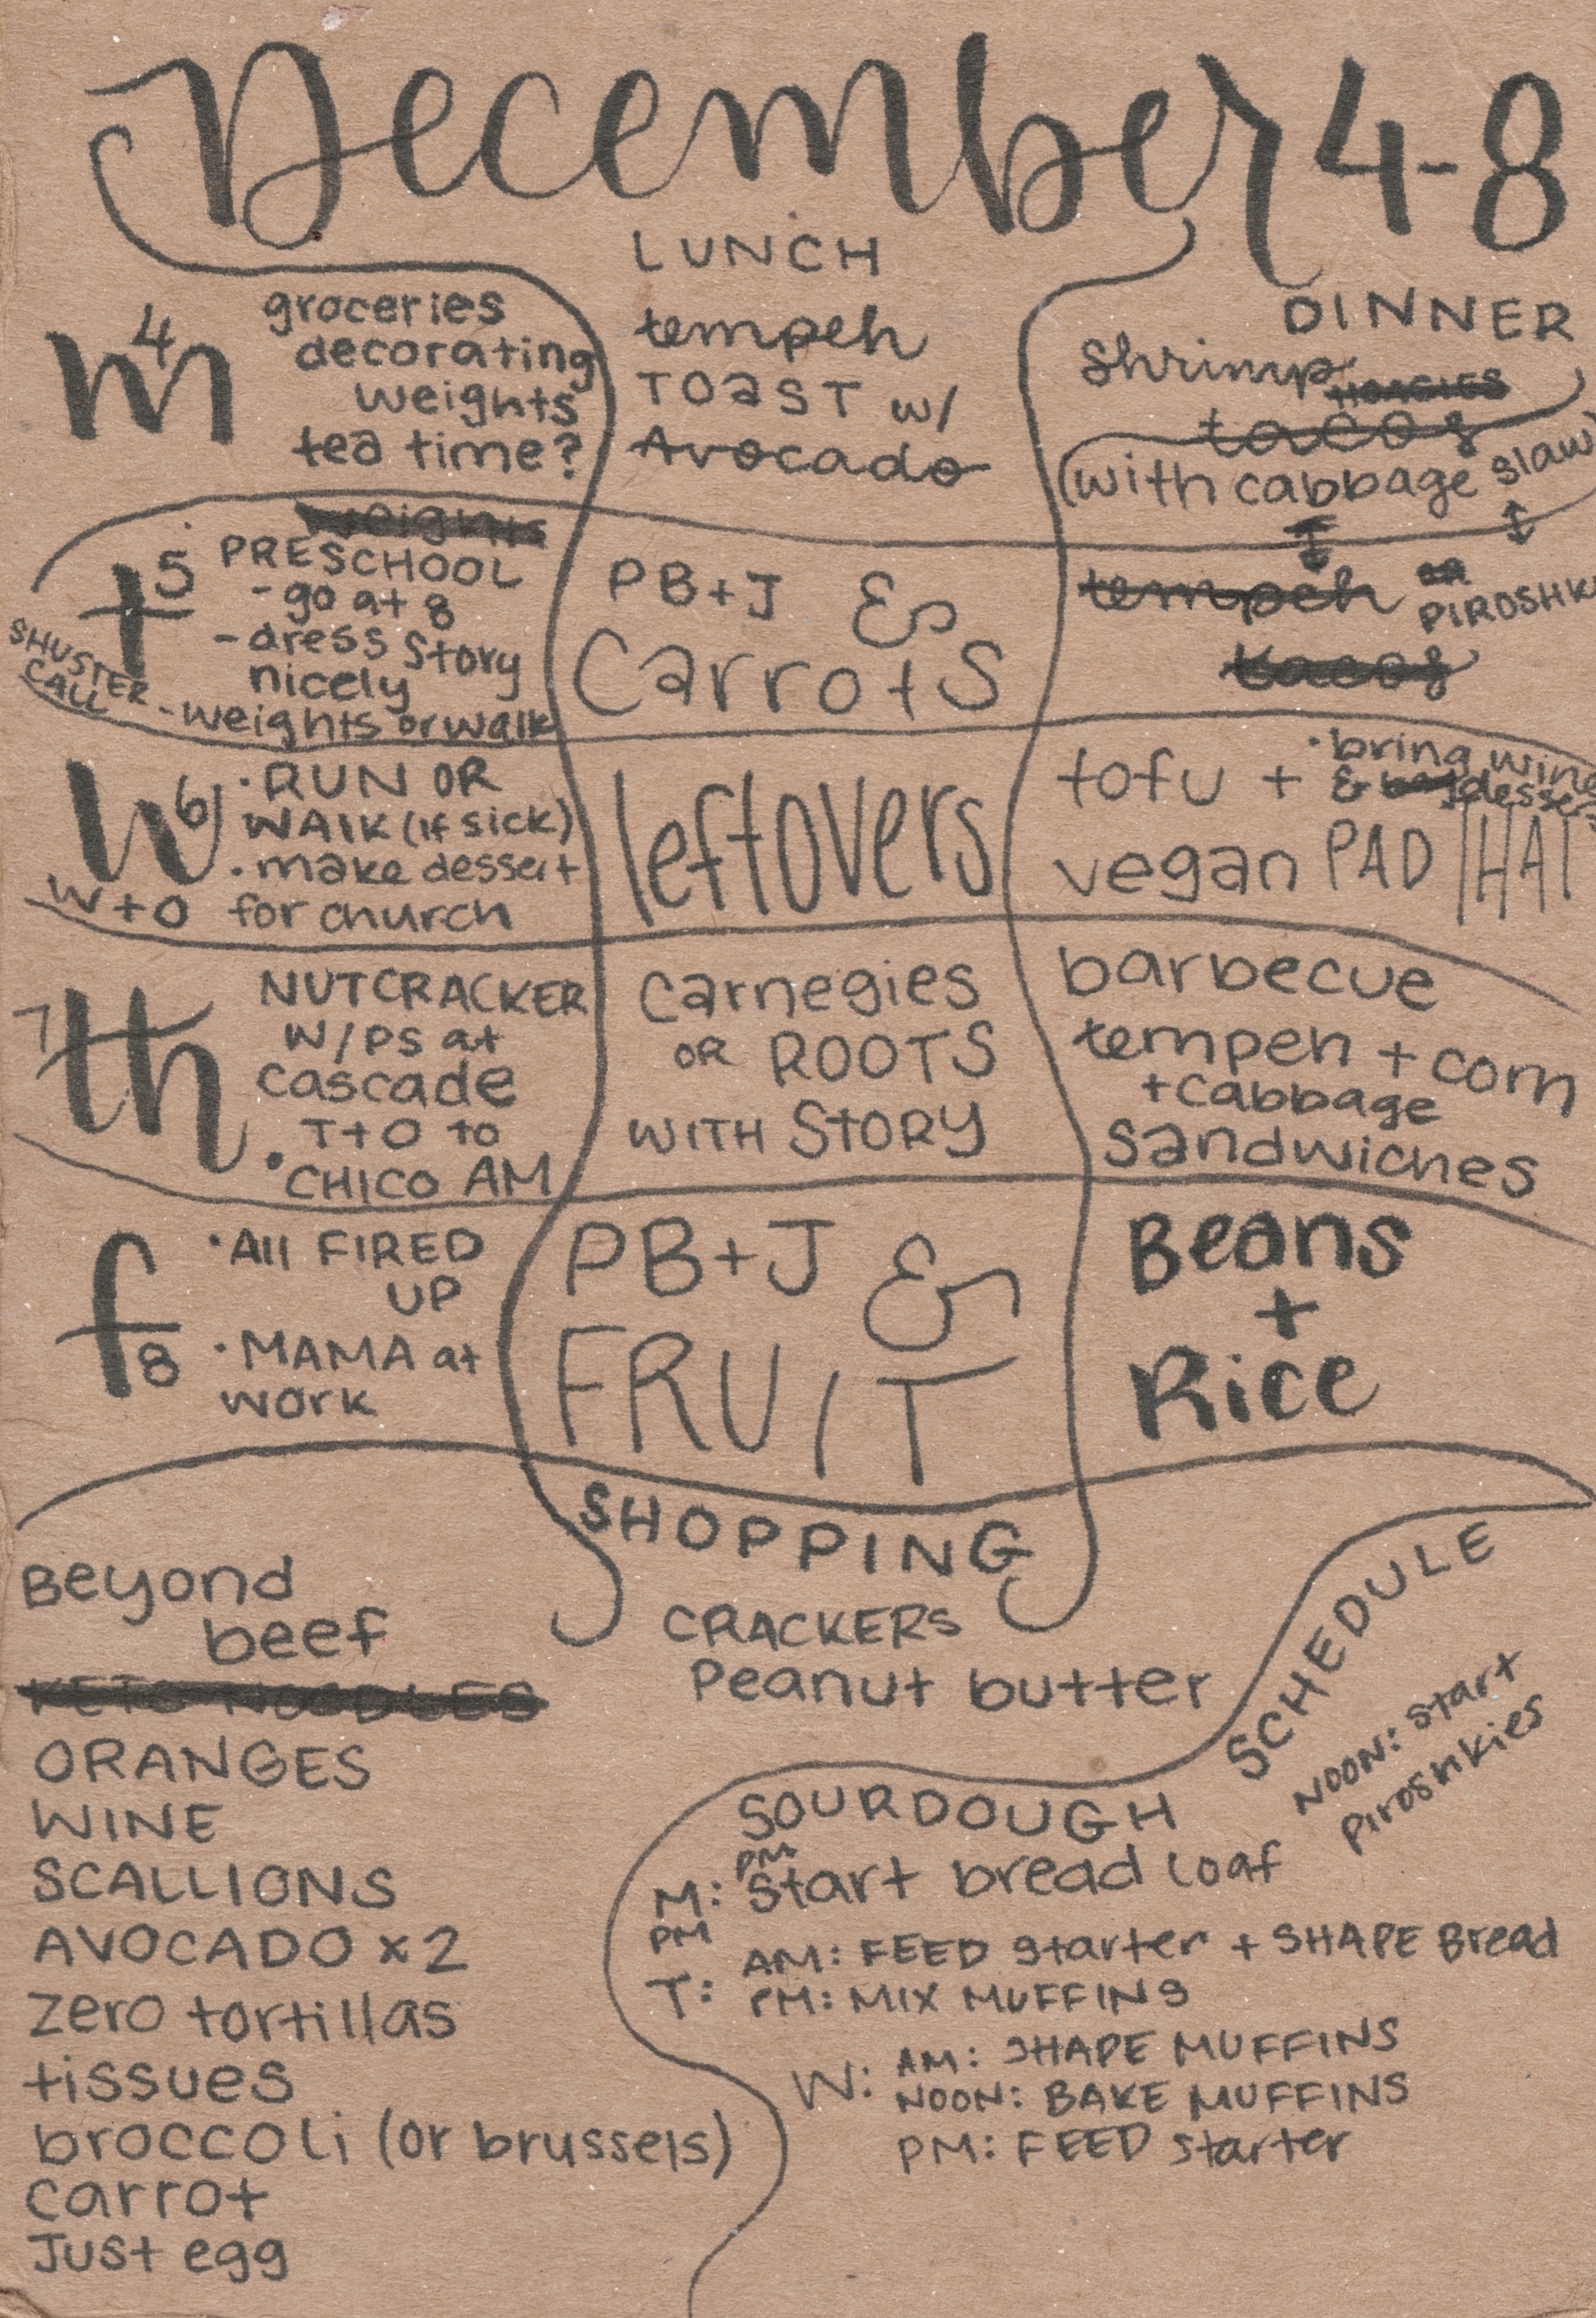 December 4-8
LUNCH
DINNER
m 4
groceries
decorating
weights
tea time?
tempeh
TOAST w/
Avocado
shrimp HOAGIES
tacos
(with cabbage slaw
t 5
SHUSTER
CALL
weights
PRESCHOOL
- go at 8
- dress Story
nicely
- weights or walk
PB+J &
Carrots
tempeh OR
PIROSHK
tacos
W 6
W+O
• RUN OR
WALK (if sick)
• make dessert
for church
leftovers
tofu +
vegan PAD THAI
• bring wine
& dessert
7 th
NUTCRACKER
W/PS at
cascade
T+O to
• CHICO AM
Carnegies
OR ROOTS
WITH STORY
barbecue
tempeh + corn
+ cabbage
sandwiches
f 8
• All FIRED
UP
• MAMA at
work
PB+J &
FRUIT
Beans
+
Rice
SHOPPING
Beyond
beef
KETO NOODLES
ORANGES
WINE
SCALLIONS
AVOCADO x 2
zero tortillas
tissues
broccoli (or brussels)
carrot
Just egg
CRACKERS
Peanut butter
SCHEDULE
NOON: start
piroshkies
SOURDOUGH
PM
M: start bread loaf
PM
T: AM: FEED starter + SHAPE Bread
PM: MIX MUFFINS
W: AM: SHAPE MUFFINS
NOON: BAKE MUFFINS
PM: FEED starter